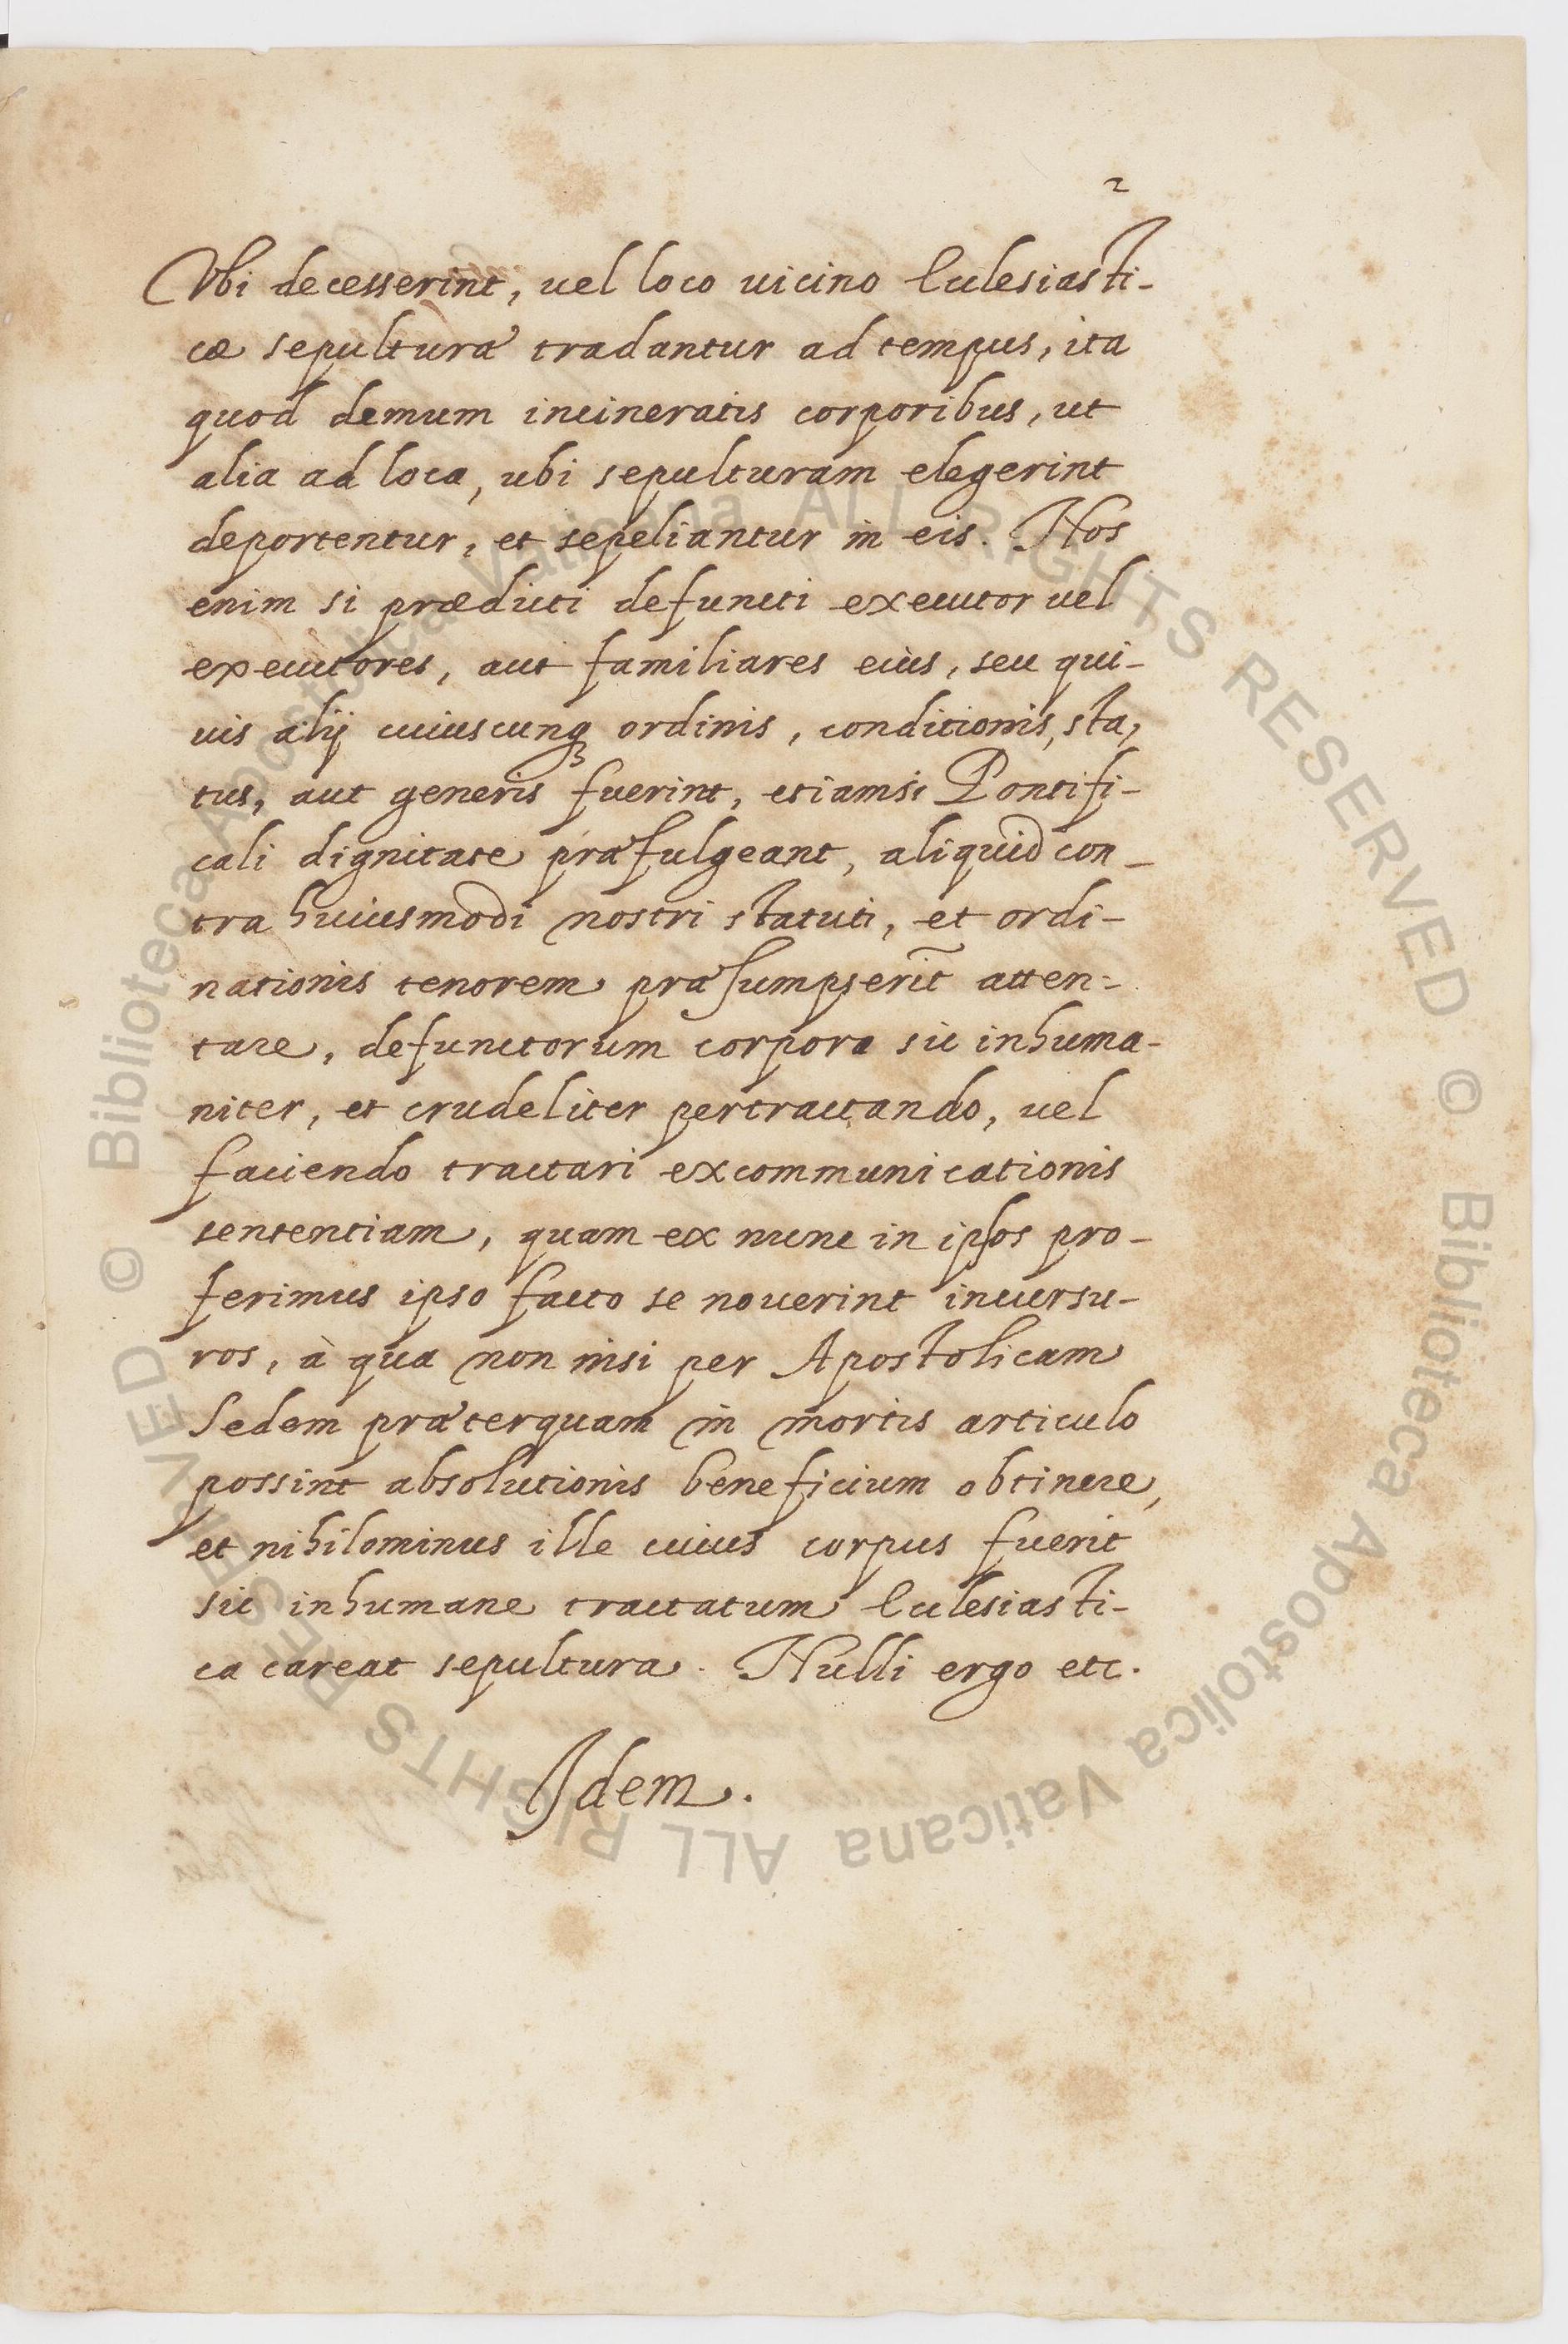 2
Vbi decesserint, uel loco uicino Ecclesiasti-
cæ sepulturæ tradantur ad tempus, ita
quod demum incineratis corporibus, ut
alia ad loca, ubi sepulturam elegerint
deportentur, et sepeliantur in eis. Nos
enim si prædicti defuncti executor uel
executores, aut familiares eius, seu qui-
uis alij cuiuscunqꝫ ordinis, conditionis, sta,
tus, aut generis fuerint, etiamsi Pontifi-
cali dignitate præfulgeant, aliquid con-
tra huiusmodi nostri statuti, et ordi-
nationis tenorem præsumpserit̃ atten-
tare, defunctorum corpora sic inhuma-
niter, et crudeliter pertractando, uel
faciendo tractari excommunicationis
sententiam, quam ex nunc in ipsos pro-
ferimus ipso facto se nouerint incursu-
ros, à qua non nisi per Apostolicam
Sedem præterquam in mortis articulo
possint absolutionis beneficium obtinere,
et nihilominus ille cuius corpus fuerit
sic inhumane tractatum Ecclesiasti-
ca careat sepultura. Nulli ergo etc.
Idem.
© Biblioteca Apostolica Vaticana ALL RIGHTS RESERVED
© Biblioteca Apostolica Vaticana ALL RIGHTS RESERVED